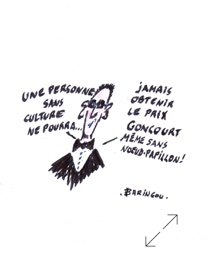 UNE PERSONNE
SANS
CULTURE
NE POURRA...
JAMAIS
OBTENIR
LE PRIX
GONCOURT
MÊME SANS
NOEUD-PAPILLON!
BARINGOU.